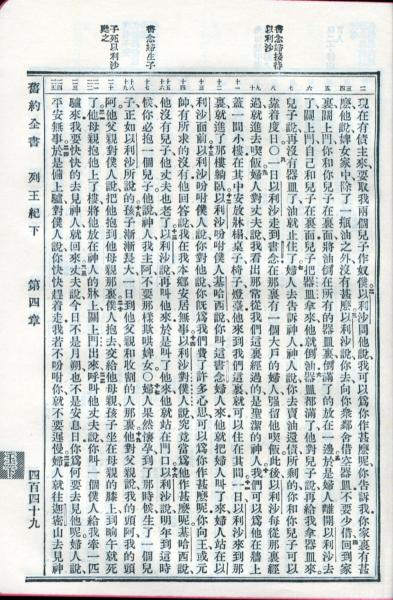 書念婦接待
以利沙
書念婦生子
子死以利沙
現在有債主來要取我兩個兒子作奴僕以利沙問他說我可以為你作甚麼呢你告訴我你家裏有甚
麼他說婢女家中除了一瓶油之外沒有甚麼以利沙說你去向你眾鄰舍借空器皿不要少借回到家
裏關上門你和你兒子在裏面將油倒在所有的器皿裏倒滿了的放在一邊於是婦人離開以利沙去
了關上門自己和兒子在裏面兒子把器皿拿來他就倒油器皿都滿了他對兒子說再給我拿器皿來
兒子說再沒有器皿了油就止住了婦人去告訴神人神人說你去賣油還債所剩的你和你兒子可以
靠着度日〇一日以利沙走到書念在那裏有一個大戶的婦人強留他喫飯此後以利沙每從那裏經
過就進去喫飯婦人對丈夫說我看出那常從我們這裏經過的是聖潔的神人我們可以為他在牆上
蓋一間小樓在其中安放牀榻桌子椅子燈臺他來到我們這裏就可以住在其間一日以利沙來到那
裏就進了那樓躺臥以利沙吩咐僕人基哈西說你叫這書念婦人來他就把婦人叫了來婦人站在以
利沙面前以利沙吩咐僕人說你對他說你既為我們費了許多心思可以為你作甚麼呢你向王或元
帥有所求的沒有他回答說我在我本鄉安居無事以利沙對僕人說究竟當為他作甚麼呢基哈西說
他沒有兒子他丈夫也老了以利沙說再叫他來於是叫了他來他就站在門口以利沙說明年到這時
候你必抱一個兒子他說神人我主阿不要那樣欺哄婢女〇婦人果然懷孕到了那時候生了一個兒
子正如以利沙所說的孩子漸漸長大一日到他父親和收割的人那裏他對父親說我的頭阿我的頭
阿他父親對僕人說把他抱到他母親那裏僕人抱去交給他母親孩子坐在母親的膝上到晌午就死
了他母親抱他上了樓將他放在神人的牀上關上門出來呼叫他丈夫說你叫一個僕人給我牽一匹
驢來我要快快的去見神人就回來丈夫說今日不是月朔也不是安息日你為何要去見他呢婦人說
平安無事於是備上驢對僕人說你快快趕着走我若不吩咐你就不要遲慢婦人就往迦密山去見神
舊約全書 列王紀下 第四章 四百四十九